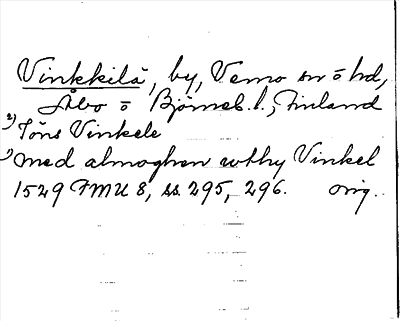 Vinkkilä, by, Vemo sn o hd,
Åbo o Björneb. l., Finland
2) Töns Vinkele
1) med almoghen wthy Vinkel
1529 FMU 8, ss. 295, 296. orig.